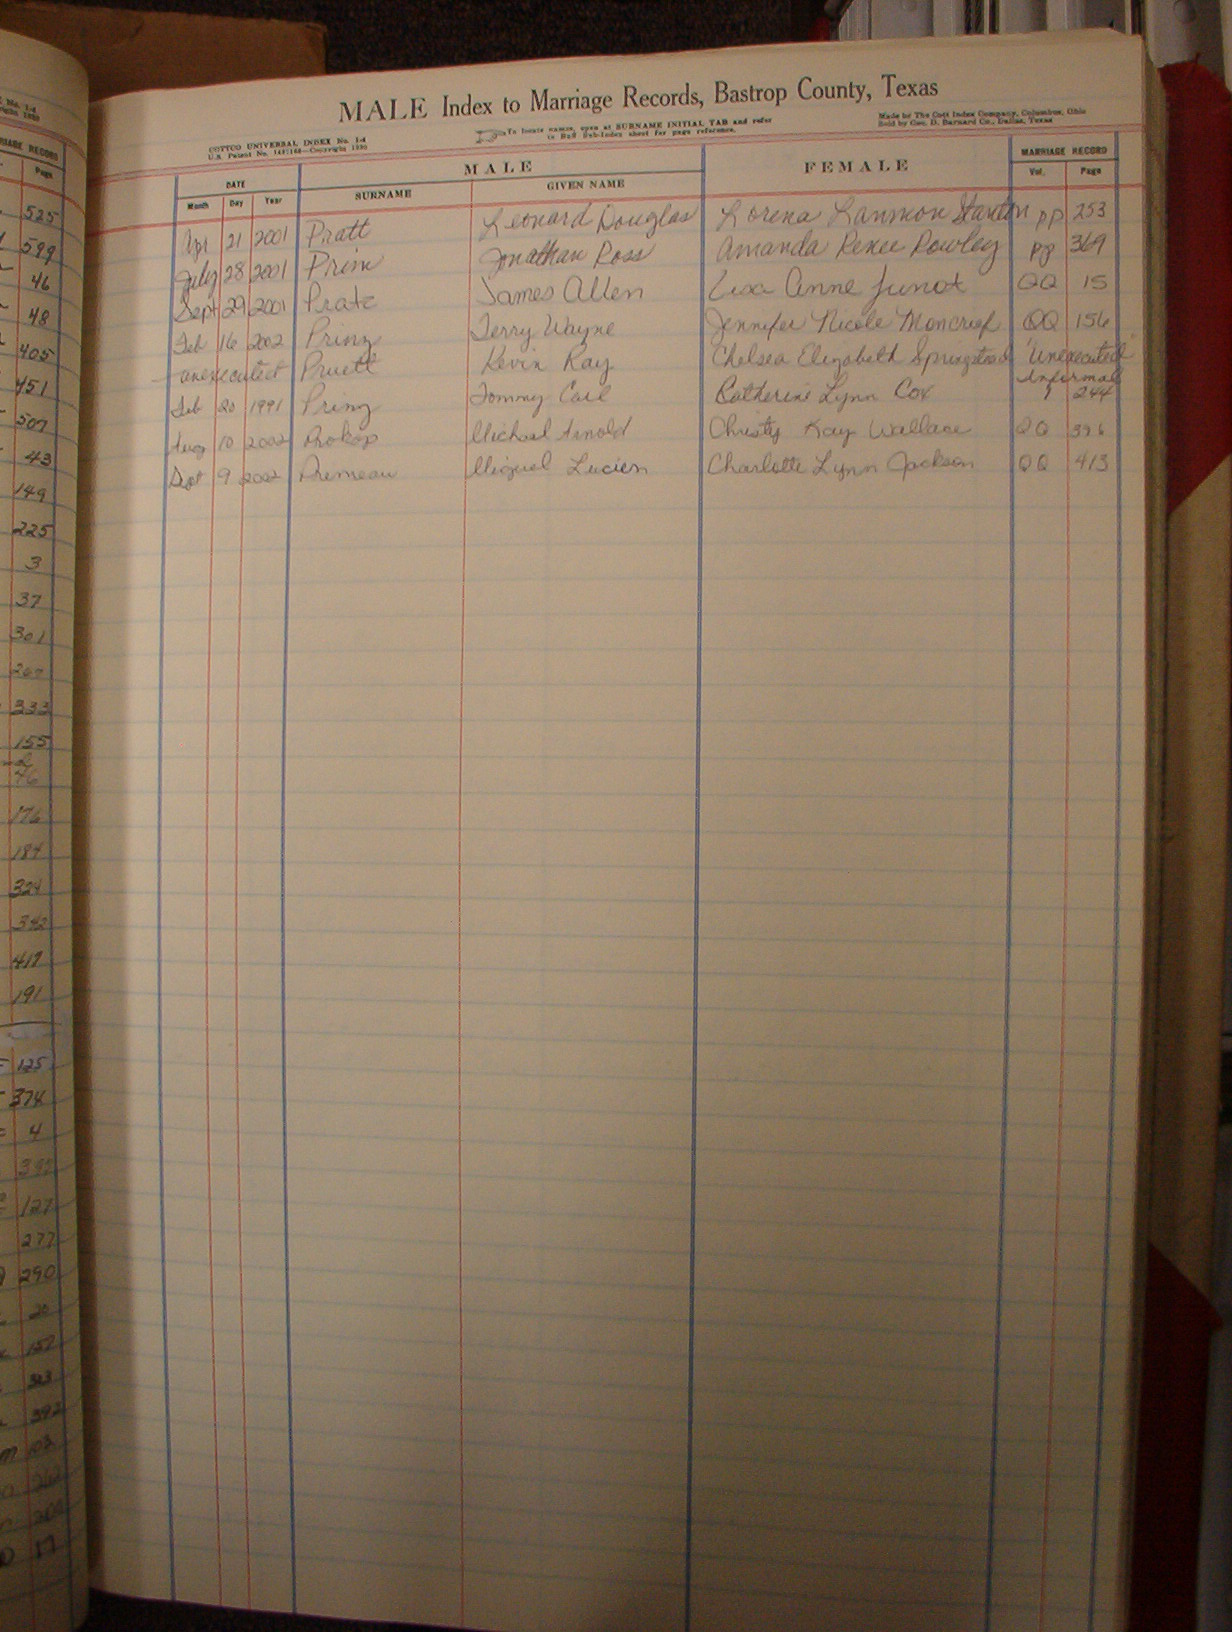 MALE Index to Marriage Records, Bastrop County, Texas
COTTCO UNIVERSAL INDEX No. 1-4
U.S. Patent No. Copyright
To locate names, open at SURNAME INITIAL TAB and refer
to Buff Sub-Index sheet for page reference.
Made by The Cott Index Company, Columbus, Ohio
Sold by Geo. D. Barnard Co., Dallas, Texas
DATE MALE FEMALE MARRIAGE RECORD
Month Day Year SURNAME GIVEN NAME Vol. Page
Apr 21 2001 Pratt Leonard Douglas Lorena Lanmon Stanton pp 253
July 28 2001 Prim Jonathan Ross Amanda Renee Rowley pp 369
Sept 29 2001 Prate James Allen Lisa Anne Junot QQ 15
Feb 16 2002 Prinz Terry Wayne Jennifer Nicole Moncrief QQ 156
unexecuted Pruett Kevin Ray Chelsea Elizabeth Springstead "Unexecuted"
Informal
Feb 20 1991 Prinz Tommy Carl Catherine Lynn Cox 1 244
Aug 10 2002 Prokop Michael Arnold Christy Kay Wallace QQ 396
Sept 9 2002 Premeau Miguel Lucien Charlotte Lynn Jackson QQ 413
RIAGE RECORD
Page
525
599
46
48
405
451
507
43
149
225
3
37
301
267
333
155
46
176
184
324
342
417
191
125
374
4
392
127
277
290
20
157
323
392
102
17